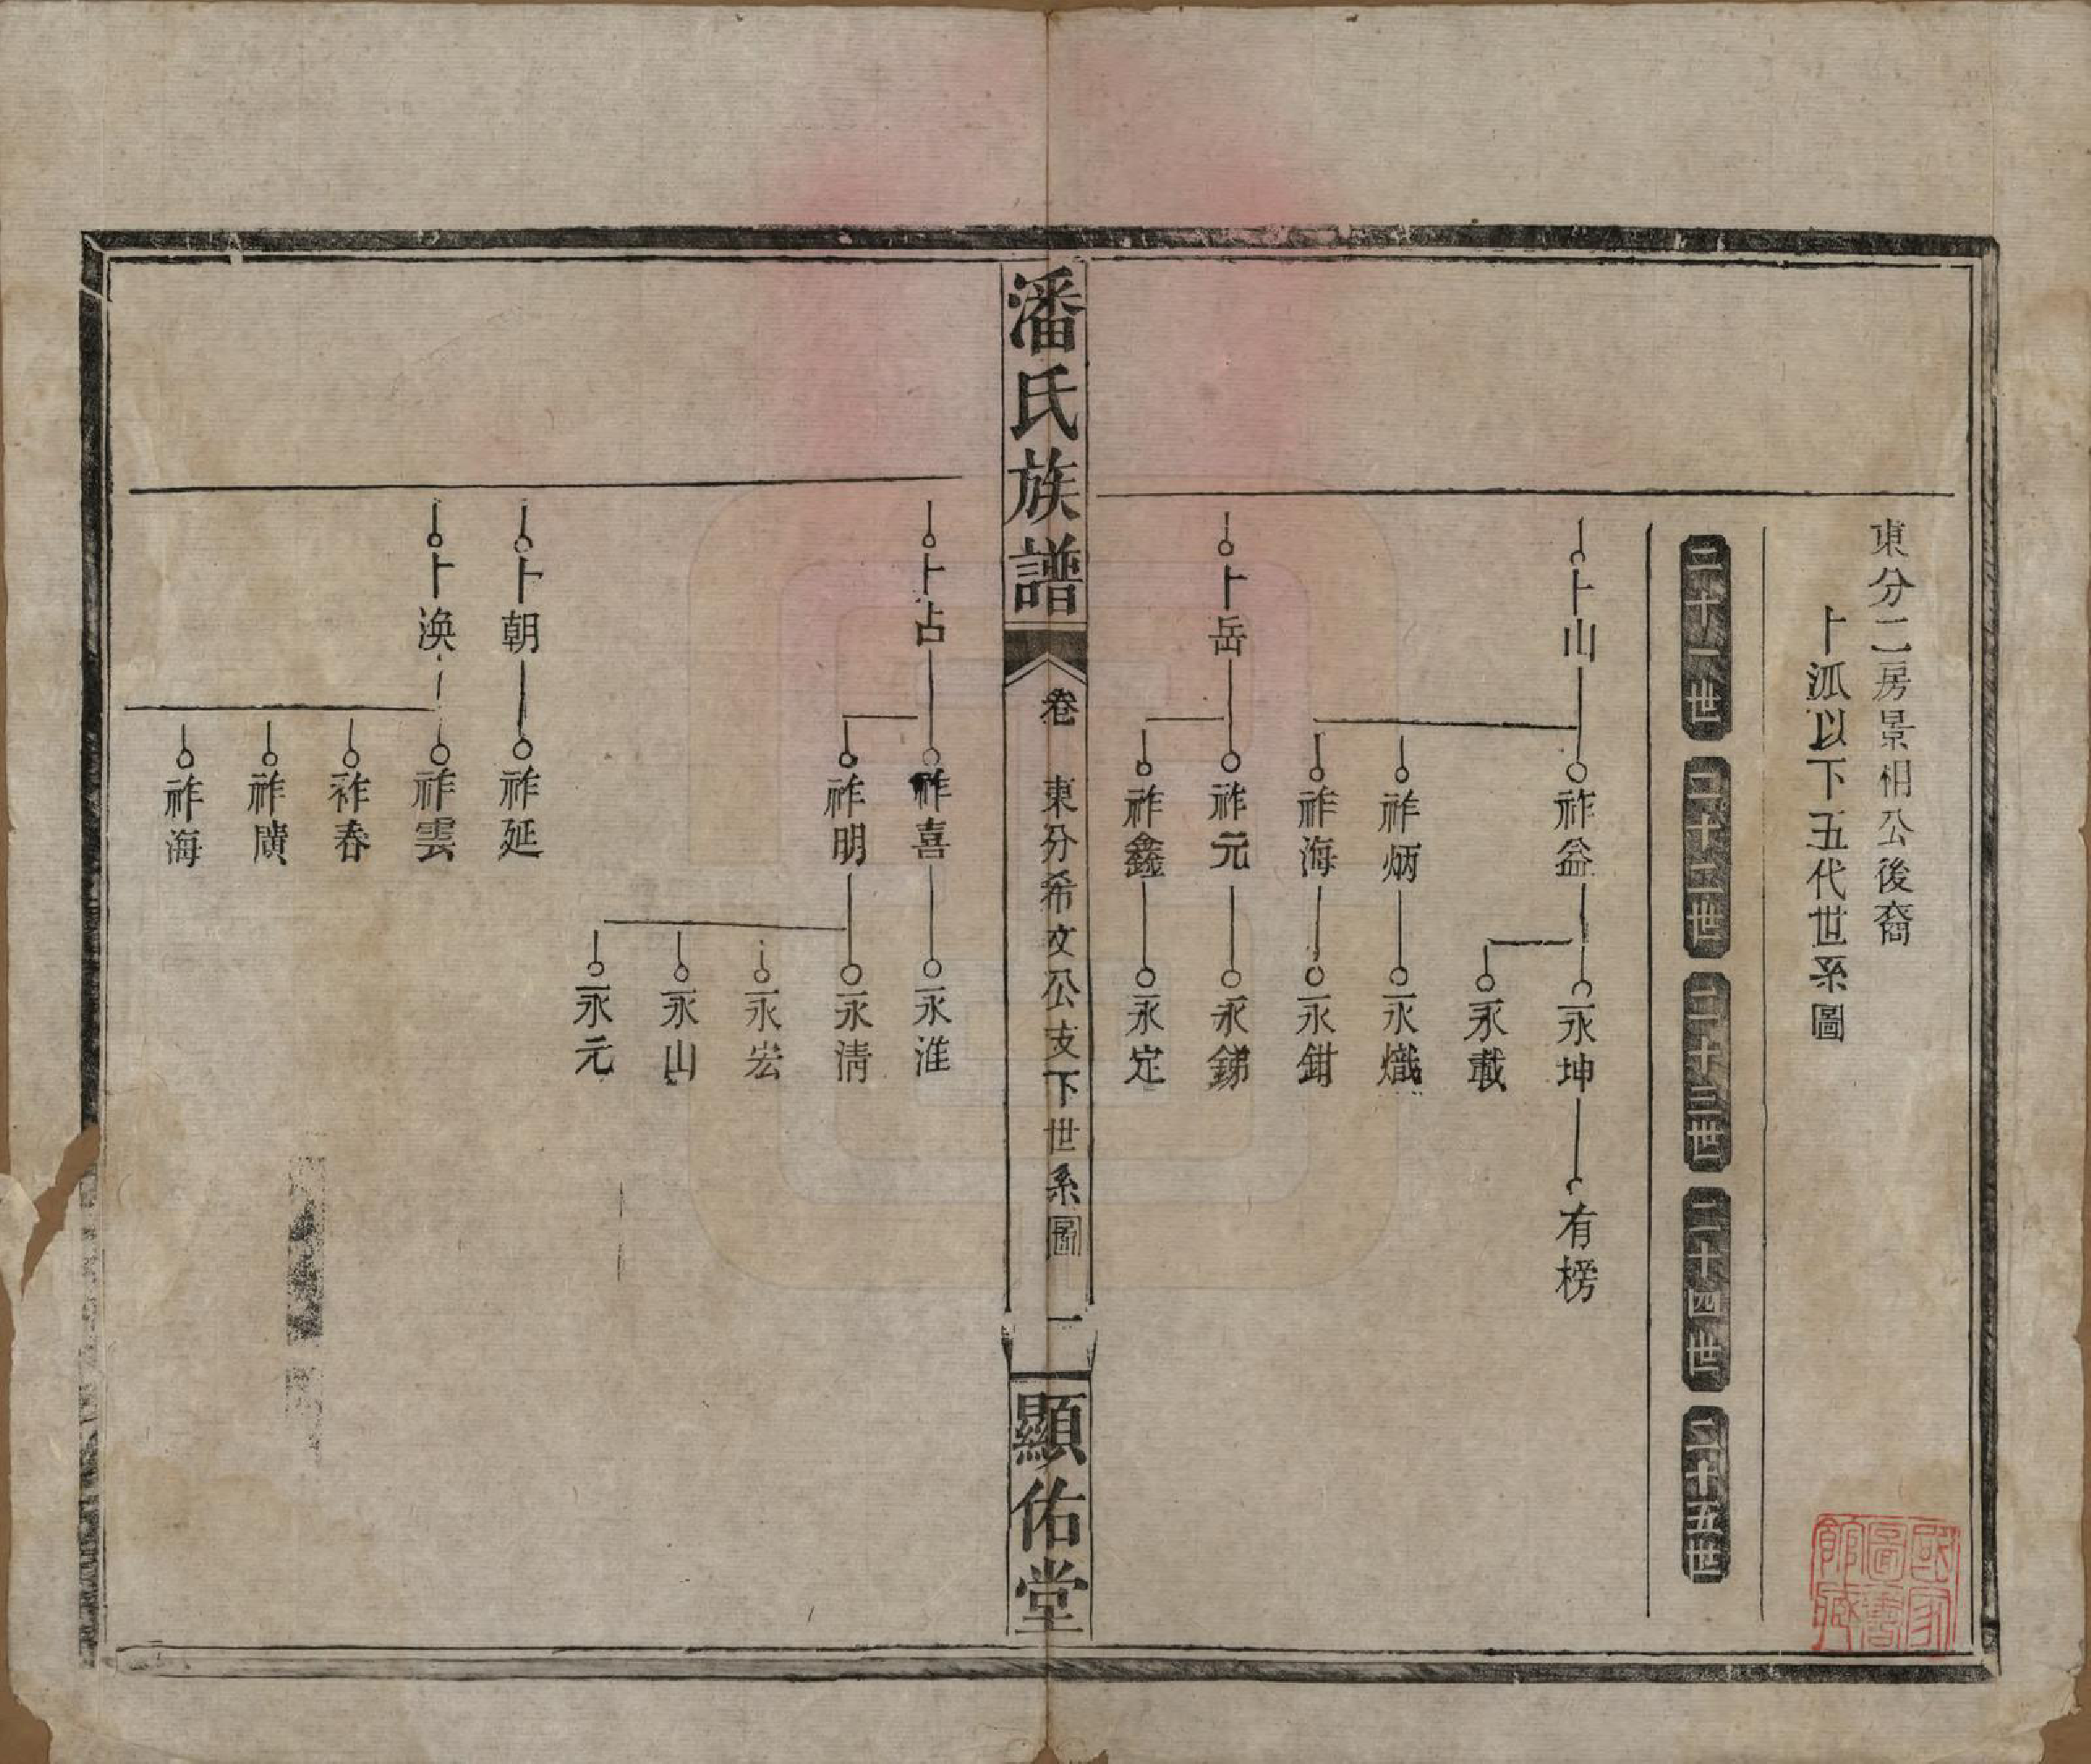 東分二房景相公後裔
卜派以下五代世系圖
二十一世
二十二世
二十三世
二十四世
二十五世
卜山
祚益
永坤
有榜
永載
祚炳
永熾
祚海
永鉗
卜岳
祚元
永銻
祚鑫
永定
潘氏族譜
卷
東分希文公支下世系圖
一
顯佑堂
卜占
祚喜
永淮
祚明
永清
永宏
永山
永元
卜朝
祚延
卜渙
祚雲
祚春
祚廣
祚海
國家
圖書
館藏